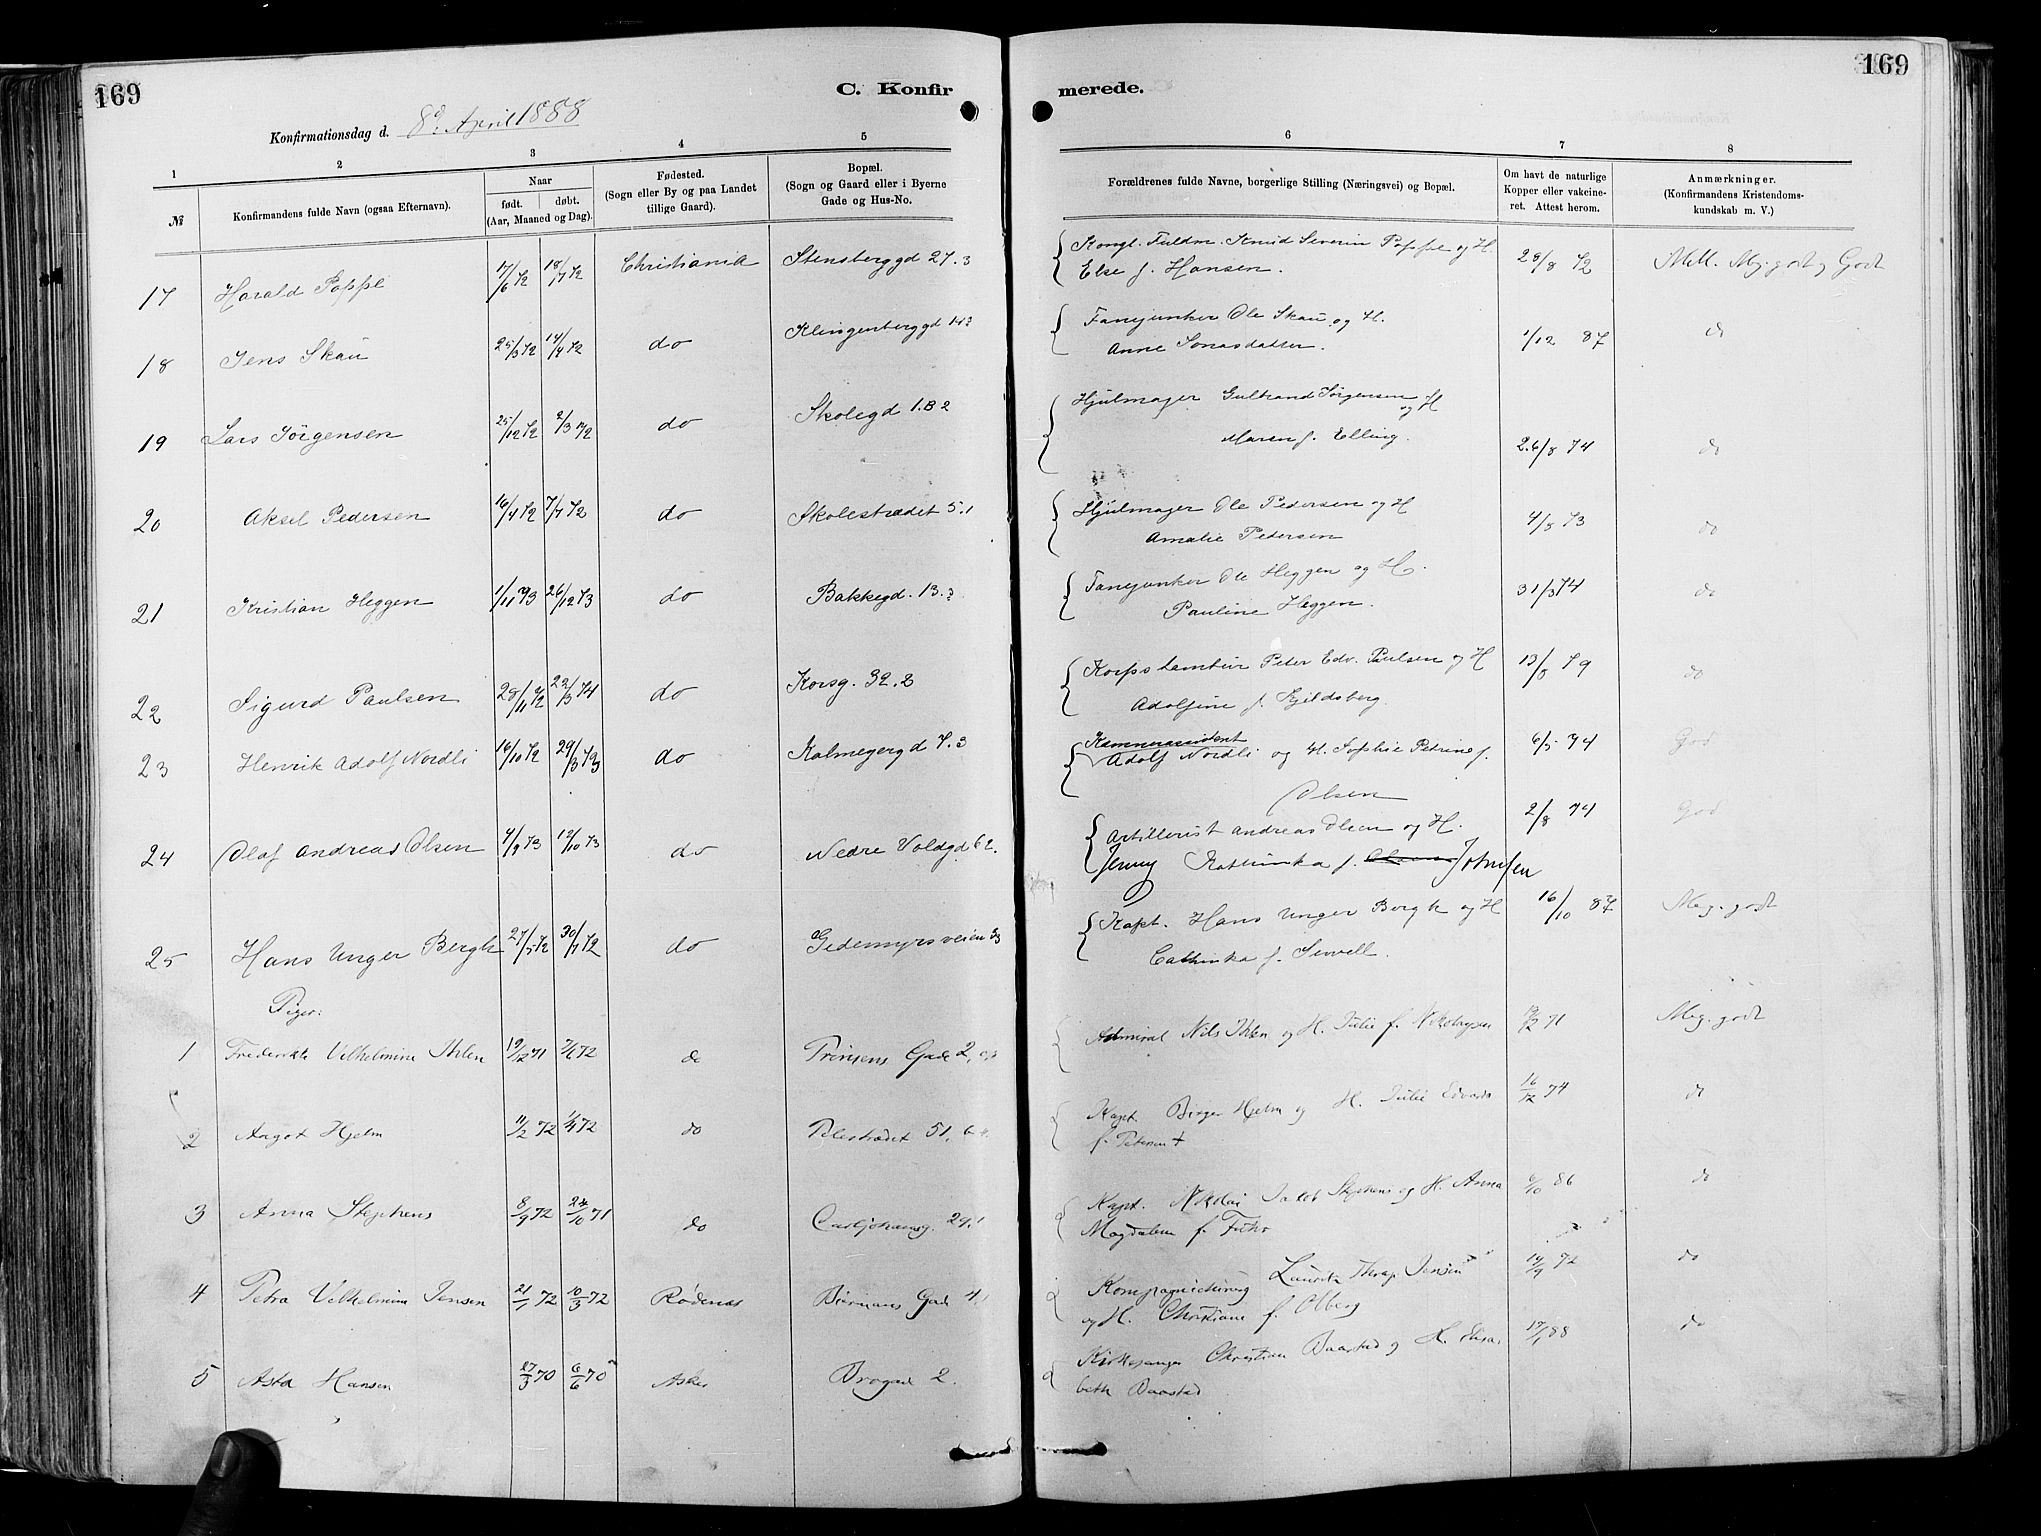 169
C. Konfirmerede.
169
Konfirmationsdag d. 8de April 1888
1 2 3 4 5 6 7 8
№ Konfirmandens fulde Navn (ogsaa Efternavn). Naar født. døbt. (Aar, Maaned og Dag). Fødested. (Sogn eller By og paa Landet tillige Gaard). Bopæl. (Sogn og Gaard eller i Byerne Gade og Hus-No. Forældrenes fulde Navne, borgerlige Stilling (Næringsvei) og Bopæl. Om havt de naturlige Kopper eller vakcineret. Attest herom. Anmærkninger. (Konfirmandens Kristendomskundskab m. V.)
17 Harald Poppe 17/6 72 18/7 72 Christiania Stensberggd 27.3 Kongl. Fuldm. Knud Severin Poppe og H.
Else f. Hansen. 28/8 72
18 Jens Skau 25/3 72 14/4 72 do Klingenberggd Fanejunker Ole Skau og H.
Anne Jonasdatter. 1/12 87 do
19 Lars Jørgensen 25/12 72 2/3 72 do Skolegd 1.B 2 Hjulmager Gulbrand Jørgensen og H
Maren f. Elling. 26/8 74 do
20 Aksel Pedersen 16/4 72 7/7 72 do Skolestrædet 5.1 Hjulmager Ole Pedersen og H
Amalie Pedersen 4/8 73 do
21 Kristian Heggen 1/11 73 26/12 73 do Bakkegd. 13.3 Fanejunker Ole Heggen og H.
Pauline Heggen. 31/3 74 do
22 Sigurd Paulsen 28/11 72 22/3 74 do Korsg. 32.2 Peter Edv. Paulsen og H
Adolfine f. Kjildsberg. 13/8 79 do
23 Henrik Adolf Nordli 16/10 72 29/3 73 do Kalmegergd 7.3 Adolf Nordli og H. Sophie Petrine f.
Olsen 6/5 74 God
24 Olaf Andreas Olsen 4/9 73 12/10 73 do Nedre Voldgd 62. Artillerist Andreas Olsen og H.
Jenny Kathinka f. Johnsen 2/8 74 God
25 Hans Unger Bergh 27/5 72 30/7 72 do Gedemyrsveien Kapt. Hans Unger Bergh og H
Cathinka f. Sewell. 16/10 87 Meg. godt
Piger.
1 Frederikke Vilhelmine Ihlen 19/12 71 72 do Prinsens Gade 2, Admiral Nils Ihlen og H. Julie f. Nikolaysen 71 Meg. godt
2 Angot Hjelm 11/2 72 1/4 72 do Pilestrædet 51, Kapt. Birger Hjelm og H. Julie Edvarda
f. Petersen + 16/12 74 do
3 Anna Stephens 8/9 72 24/10 71 do Carljohansg. 29.1 Kapt. Nikolai Jakob Stephens og H. Anna
Magdalene f. 6/10 86 do
4 Petra Vilhelmine Jensen 21/1 72 10/3 72 Rødenæs Gade 4.1 Lauritz Jensen
og H. Christiane f. Olberg 14/9 72 do
5 Asta Hansen 27/3 70 6/6 70 Asker Brogade 2. Kirkesanger Christian Baastad og H. Elisa
beth Baastad 17/1 88 do